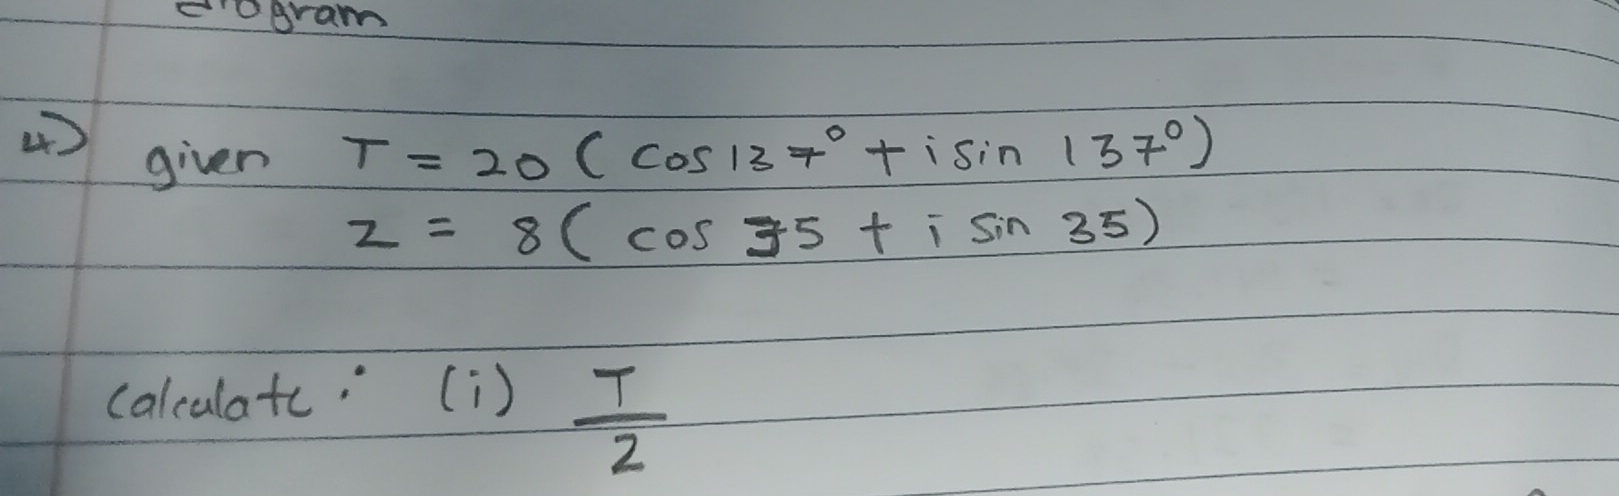 diogram
4) given T = 20 ( cos 137° + i sin 137°)
z = 8 ( cos 35 + i sin 35)
calculate : (i) T
z